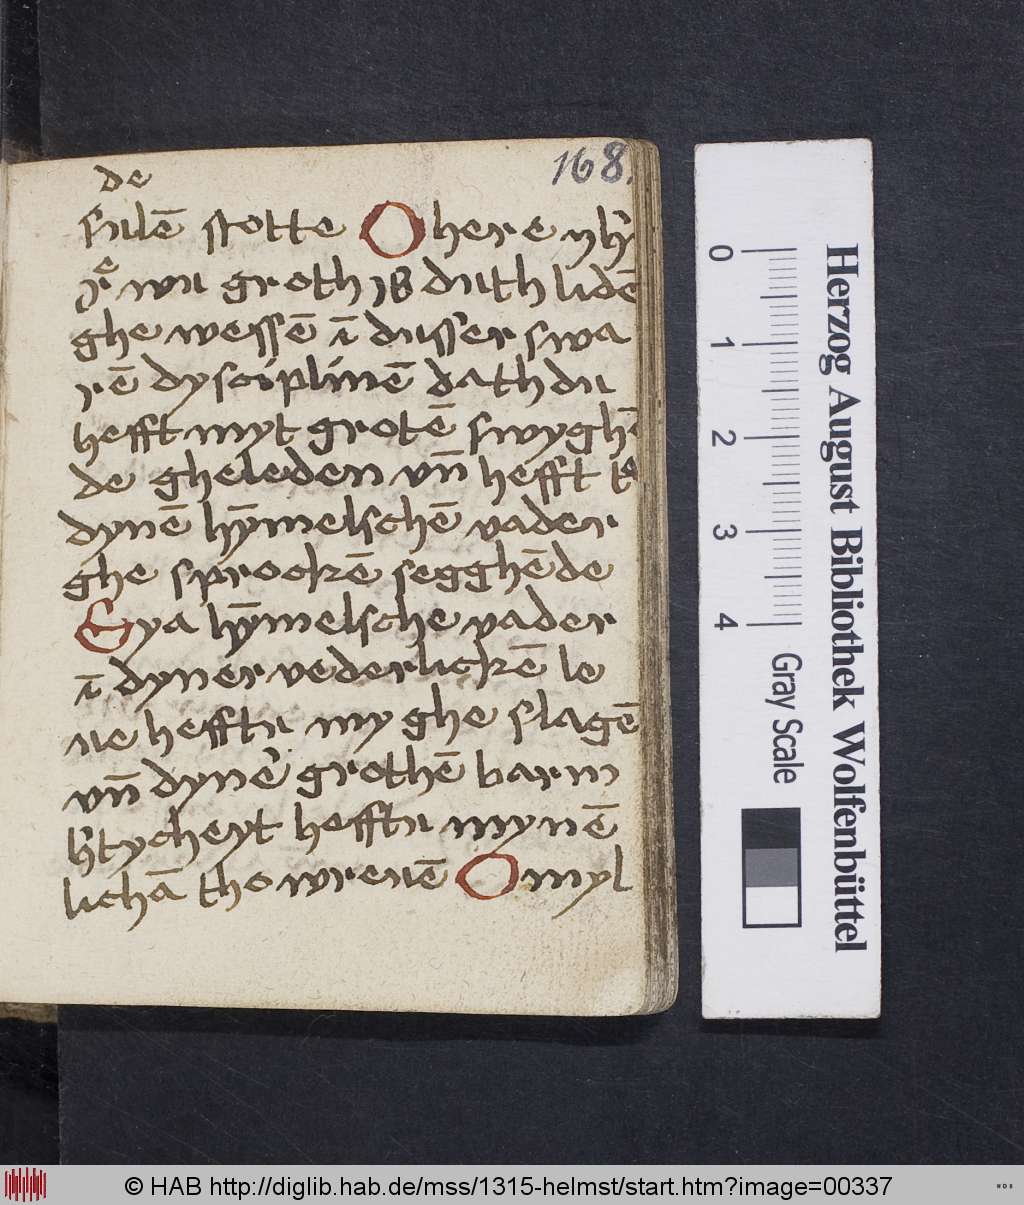 168.
de
sulē stotte O here yh̄
xp̄e wu groth is duth lidē
ghe wessē ī dusser swa
rē dysciplinē dath du
hefft myt grotē swyghē
de gheleden vn̄ hefft to
dynē hȳmelschē vader
ghe sprockē segghēde
Eya hȳmelsche vader
ī dyner vederlickē le
ue hefftu my ghe slagē
vn̄ dyner grothē barm
h'tycheyt hefftu mynē
lichā tho wreuē O myl
Herzog August Bibliothek Wolfenbüttel
0 1 2 3 4
Gray Scale
© HAB http://diglib.hab.de/mss/1315-helmst/start.htm?image=00337